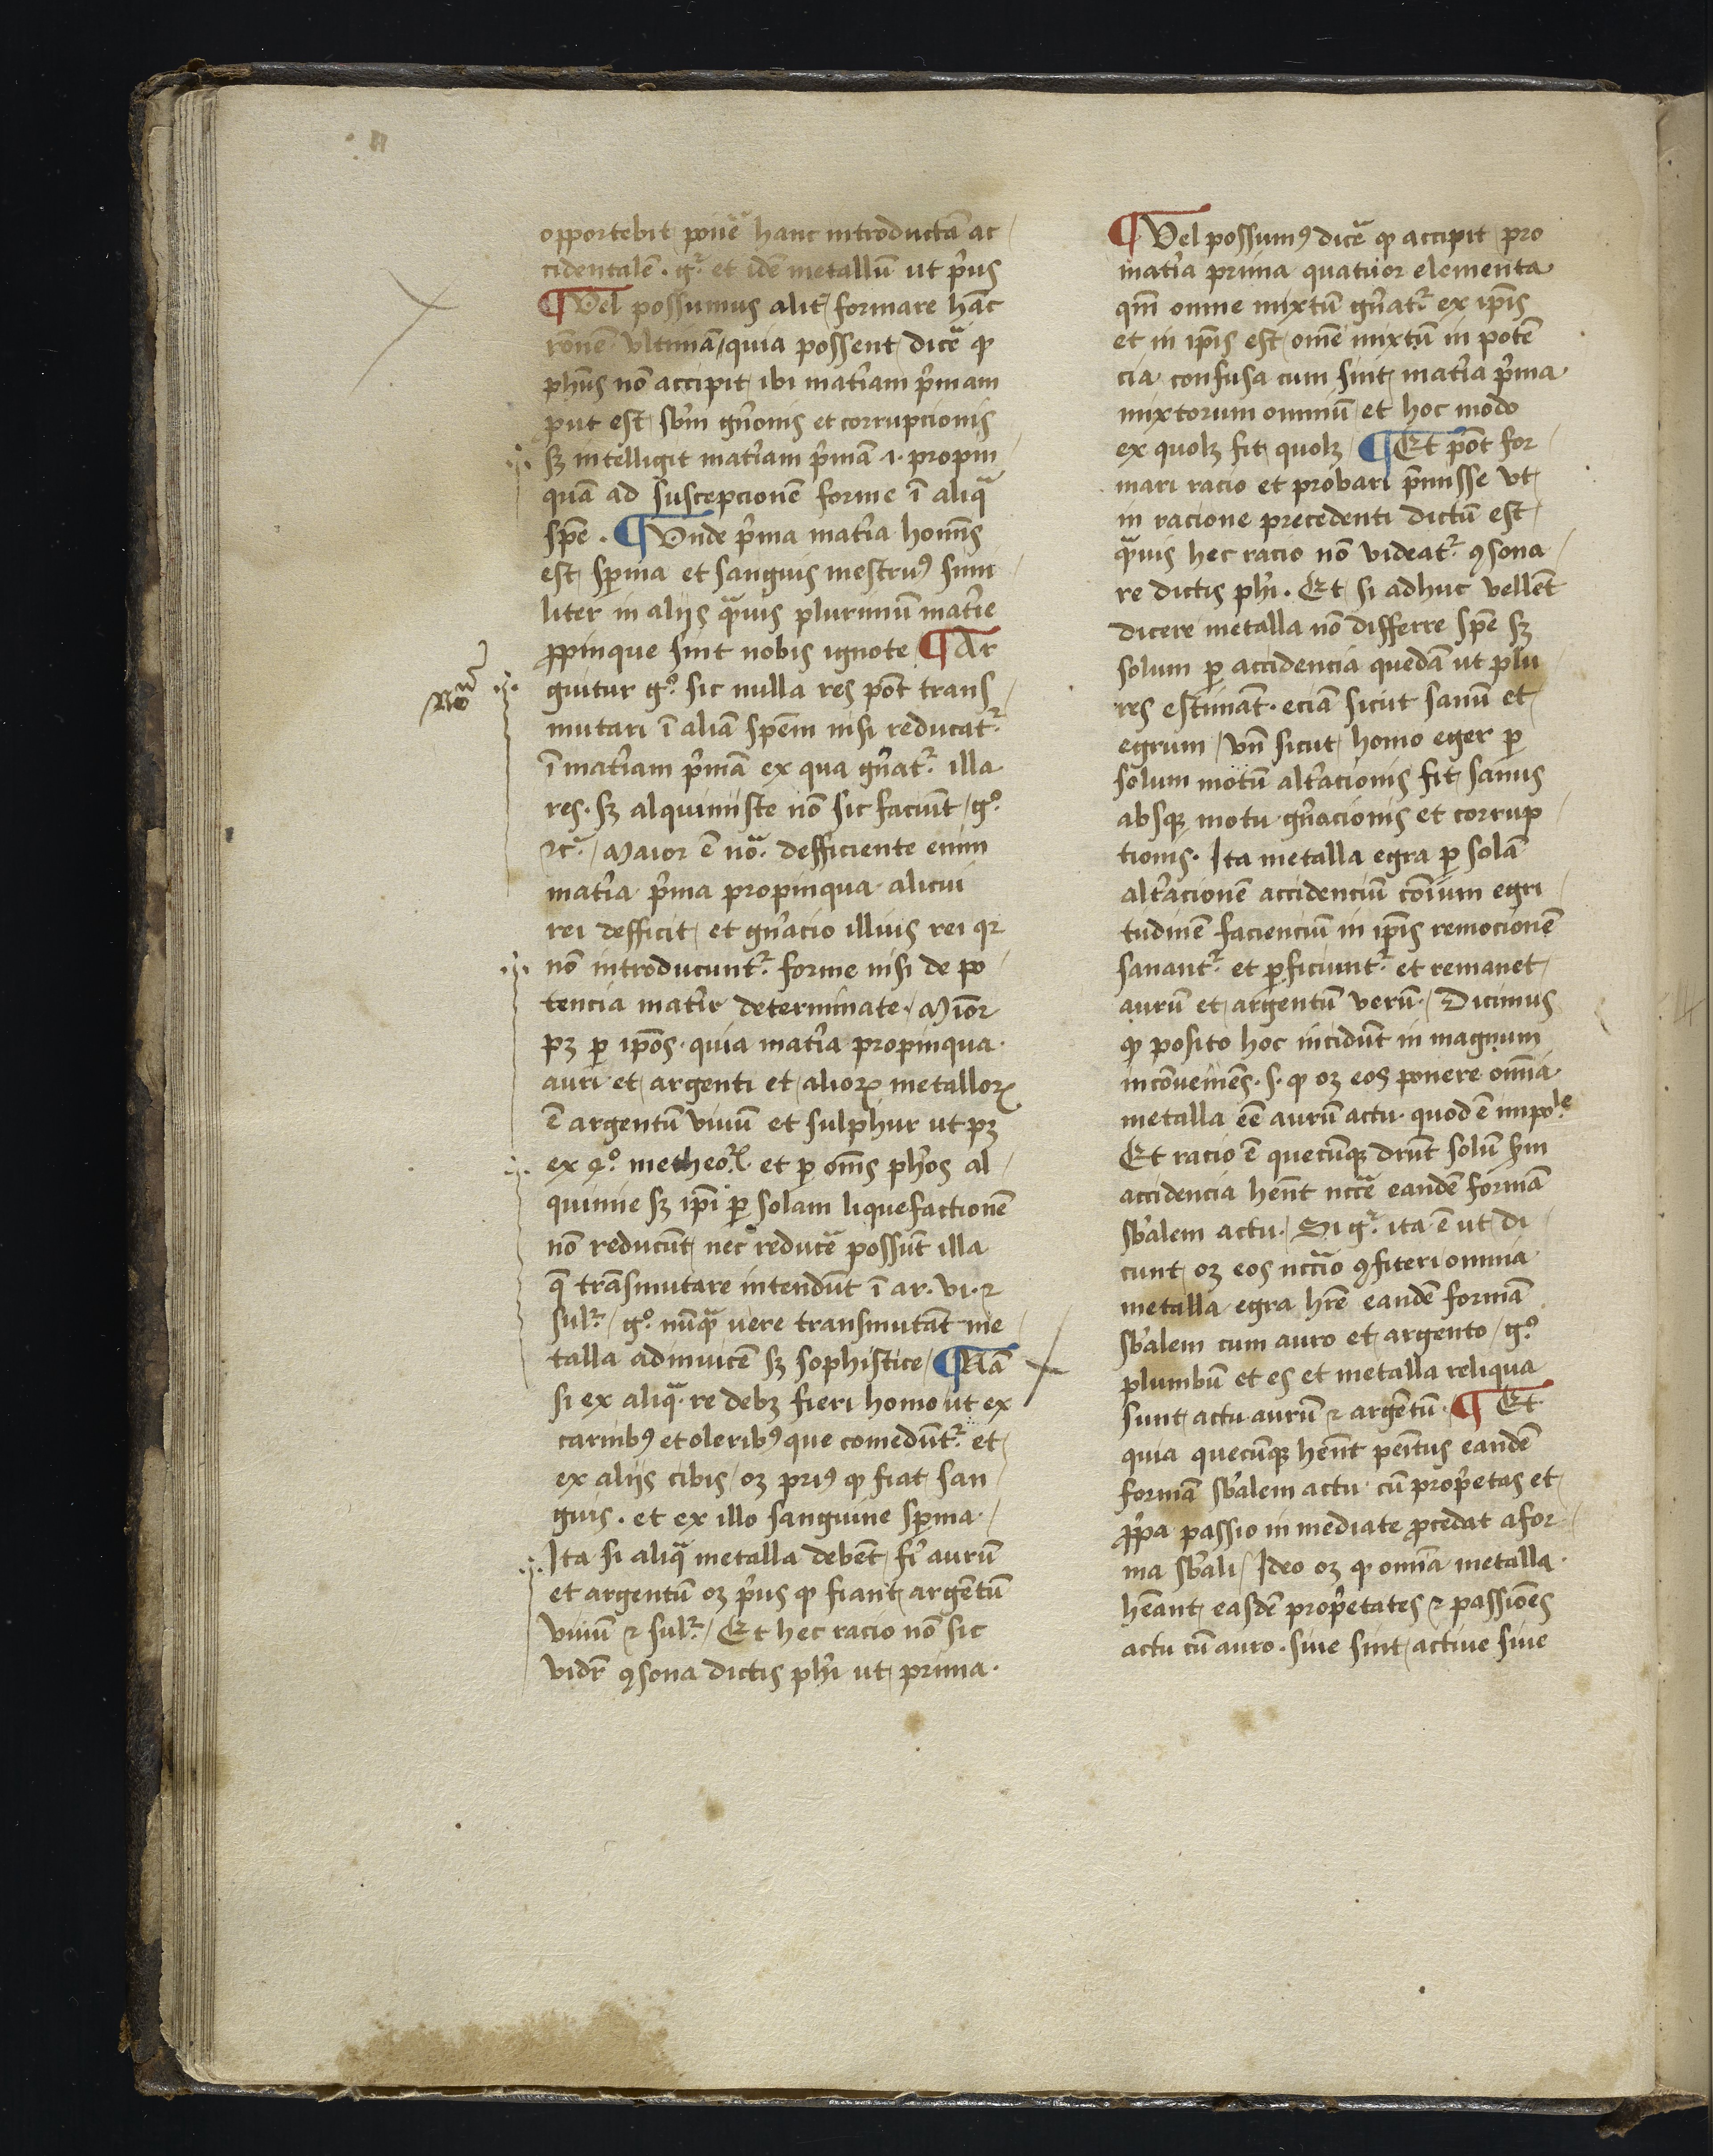 opportebit ponẽ hanc introductã ac
cidentalẽ . gͬ. et idẽ metallũ ut p̃us
¶ Vel possumus alit̃ formare hãc
rõnẽ vltimã / quia possent dicẽ ꝙ
ph̃us nõ accipit ibi mat̃iam p̃mam
put est sb̃m gñonis et corrupcionis
sꝫ intelligit mat̃iam p̃mã .i. propin
quã ad suscepcionẽ forme ĩ aliqᵃ
spẽ . ¶ Vnde p̃ma mat̃ia homĩs
est sꝑma et sanguis mestruꝰ simi
liter in aliis qᵃuis plurimũ mat̃ie
ꝓpinque sint nobis ignote ¶ Ar
guitur gº. sic nulla res põt trans
mutari ĩ aliã spẽm nisi reducatᷣ
ĩ mat̃iam p̃mã ex qua gñatᷣ. illa
res . sꝫ alquimiste nõ sic faciũt / gº.
⁊cᵃ. / Maior ẽ nõᵃ. defficiente enim
mat̃ia p̃ma propinqua alicui
rei defficit et gñacio illius rei qꝛ
nõ introducuntᷣ. forme nisi de po
tencia mat̃ie determinate . Miõr
pꝫ ꝑ ip̃os . quia mat̃ia propinqua
auri et argenti et alioꝝ metalloꝝ
ẽ argentũ viuũ et sulphur ut pꝫ
ex 4º. metheoꝝ. et ꝑ om̃s ph̃os al
quimie sꝫ ip̃i ꝑ solam liquefactionẽ
nõ reducũt nec reducẽ possũt illa
q̃ trãsmutare intendũt ĩ ar . vi . ⁊
sulᷣ. / gº. nũqᵃ uere transmutãt me
talla adinuicẽ sꝫ sophistice / ¶ Nã
si ex aliqᵃ re debꝫ fieri homo ut ex
carnibꝰ et oleribꝰ que comedũtᷣ. et
ex aliis cibis / oꝫ priꝰ ꝙ fiat san
guis . et ex illo sanguine sꝑma . /
Ita si aliqᵃ metalla debẽt fĩ aurũ
et argentũ oꝫ p̃us ꝙ fiant argẽtũ
viuũ ⁊ sulᷣ. / Et hec racio nõ sic
vidẽ ꝯsona dictis ph̃i ut prima .
Noᵃ
¶ Vel possumꝰ dicẽ ꝙ accipit pro
mat̃ia prima quatuor elementa
qm̃ omne mixtũ gñatᷣ ex ip̃is
et in ip̃is est om̃e mixtũ in potẽ
cia confusa cum sint mat̃ia p̃ma
mixtorum omniũ et hoc modo
ex quolꝫ fit quolꝫ / ¶ Et põt for
mari racio et probari p̃misse vt
in racione precedenti dictũ est
qᵃuis hec racio nõ videatᷣ. ꝯsona
re dictis ph̃i . Et si adhuc vellẽt
dicere metalla nõ differre spẽ sꝫ
solum ꝑ accidencia quedã ut plu
res estimãt . eciã sicut sanũ et
egrum / vñ sicut homo eger ꝑ
solum motũ alt̃acionis fit sanus
absqꝫ motu gñacionis et corrup
tionis . Ita metalla egra ꝑ solã
alt̃acionẽ accidenciũ cõium egri
tudinẽ faciencium in ip̃is remocionẽ
sanantᷣ. et ꝑficiuntᷣ. et remanet
aurũ et argentũ verũ . / Dicimus
ꝙ posito hoc incidũt in magnum
incõueniẽs . s . ꝙ oꝫ eos ponere om̃ia
metalla eẽ aurũ actu . quod ẽ impoˡᵉ
Et racio ẽ quecũqꝫ drñt solũ sm̃
accidencia hẽnt nccẽ eandẽ formã
sb̃alem actu . / Si gͬ. ita ẽ ut di
cunt oꝫ eos nccᵃio ꝯfiteri omnia
metalla egra hr̃e eandẽ formã
sb̃alem cum auro et argento / gº.
plumbũ et es et metalla reliqua
sunt actu aurũ ⁊ argẽtũ . ¶ Et
quia quecũqꝫ hẽnt penitus eandẽ
formã sb̃alem actu cũ prop̃etas et
ꝓpa passio inmediate ꝓcedat a for
ma sb̃ali / Ideo oꝫ ꝙ om̃ia metalla
hẽant easdẽ prop̃etates ⁊ passiões
actu cũ auro . siue sint actiue siue